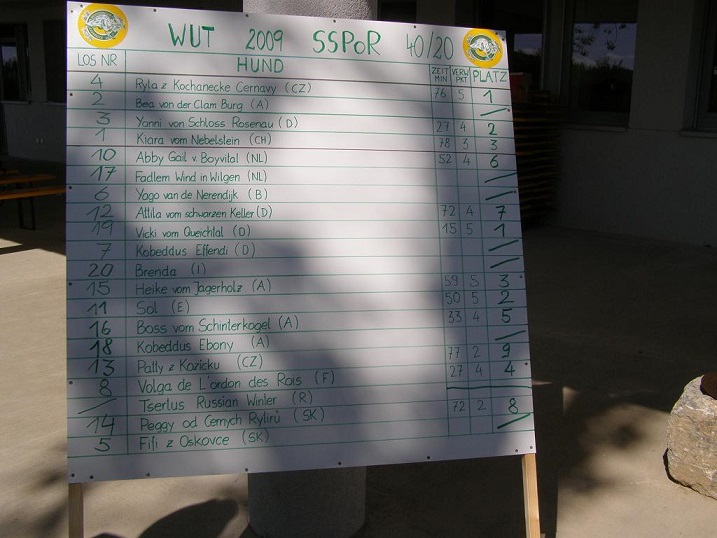 WUT 2009 SSPoR 40/20
LOS NR HUND ZEIT MIN VERW PKT PLATZ
4 Ryla z Kochanecke Cernavy (CZ) 76 5 1
2 Bea von der Clam Burg (A) /
3 Yanni von Schloss Rosenau (D) 27 4 2
1 Kiara vom Nebelstein (CH) 78 3 3
10 Abby Gail v Boyvital (NL) 52 4 6
17 Fadlem Wind in Wilgen (NL) /
6 Yago van de Nerendijk (B) /
12 Attila vom schwarzen Keller (D) 72 4 7
19 Vicki vom Queichtal (D) 15 5 1
7 Kobeddus Effendi (D) /
20 Brenda (I) /
15 Heike vom Jagerholz (A) 59 5 3
11 Sol (E) 50 5 2
16 Boss vom Schinterkogel (A) 33 4 5
18 Kobeddus Ebony (A) /
13 Patty z Kozicku (CZ) 77 2 9
8 Volga de L'ordon des Rois (F) 27 4 4
/ Tserlus Russian Winler (R)
14 Peggy od Cernych Rytirů (SK) 72 2 8
5 Fifi z Oskovce (SK) /